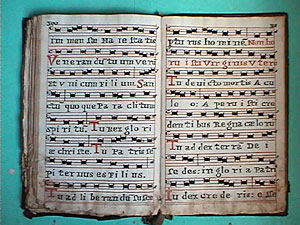 Im men sæ Ma ie sta tis
Ve ne ran dum tu um ve ri
et v ni cum fi li um. San
ctu quo que Pa ra cli tum
spi ri tu. Tu rex glo ri
æ chri ste. Tu Pa tris
pi ter nus es fi li us.
Tu ad li be ran du
ptu rus ho mi nē. Non ho
ru i sti Vir gi nis V te rū
Tu de vi cto mor tis A cu
le o: A pe ru i sti cre
den ti bus Re gna cæ lo rū
Tu ad dex te rā De i
se des: in glo ri a Pa tri
Tu dex cre de ris: e sse